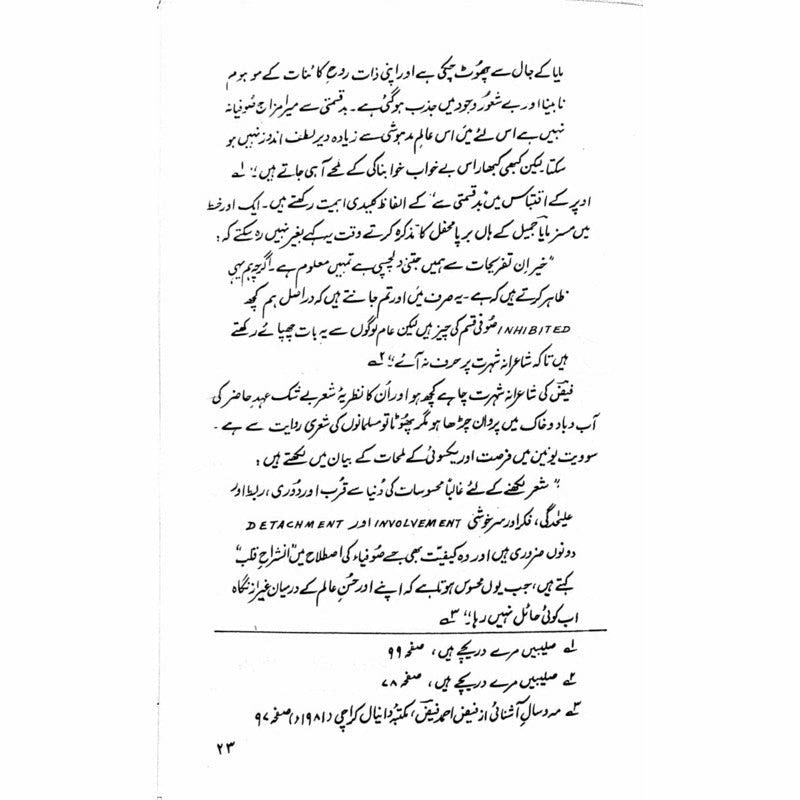 مایا کے جال سے پھُوٹ چکی ہے اور اپنی ذات روحِ کائنات کے موہوم
نابینا اور بے شعور وجود میں جذب ہو گئی ہے۔ بدقسمتی سے میرا مزاج صُوفیانہ
نہیں ہے اس لئے مَیں اس عالمِ مدہوشی سے زیادہ دیر لطف اندوز نہیں ہو
سکتا لیکن کبھی کبھار اس بے خواب خوابناکی کے لمحے آ ہی جاتے ہیں۔" ۱؎
اوپر کے اقتباس میں "بدقسمتی سے" کے الفاظ کلیدی اہمیت رکھتے ہیں۔ ایک اور خط
میں مسز مایا جمیل کے ہاں برپا محفل کا تذکرہ کرتے وقت یہ کہے بغیر نہیں رہ سکتے کہ :
"خیر اِن تفریحات سے ہمیں جتنی دلچسپی ہے تمہیں معلوم ہے۔ اگرچہ ہم یہی
ظاہر کرتے ہیں کہ ہے۔ یہ صرف مَیں اور تم جانتے ہیں کہ دراصل ہم کچھ
INHIBITED صُوفی قسم کی چیز ہیں لیکن عام لوگوں سے یہ بات چھپائے رکھتے
ہیں تاکہ شاعرانہ شہرت پر حرف نہ آئے" ۲؎
فیضؔ کی شاعرانہ شہرت چاہے کچھ ہو اور اُن کا نظریۂ شعر بے شک عہدِ حاضر کی
آب و باد و خاک میں پروان چڑھا ہو مگر پھُوٹا تو مسلمانوں کی شعری روایت سے ہے۔
سوویت یونین میں فرصت اور یکسوئی کے لمحات کے بیان میں لکھتے ہیں :
"شعر لکھنے کے لئے غالباً محسوسات کی دُنیا سے قُرب اور دُوری، ربط اور
علیحدگی، فکر اور سرخوشی INVOLVEMENT اور DETACHMENT
دونوں ضروری ہیں اور وہ کیفیت بھی جسے صُوفیاء کی اصطلاح میں "انشراحِ قلب"
کہتے ہیں، جب یوں محسوس ہوتا ہے کہ اپنے اور حُسنِ عالم کے درمیان غیر از نگاہ
اب کوئی حائل نہیں رہا" ۳؎
۱؎ صلیبیں مرے دریچے ہیں، صفحہ ۹۹
۲؎ صلیبیں مرے دریچے ہیں، صفحہ ۷۸
۳؎ مہ و سالِ آشنائی از فیض احمد فیضؔ، مکتبۂ دانیال کراچی (۱۹۸۱ء) صفحہ ۹۷
۲۳